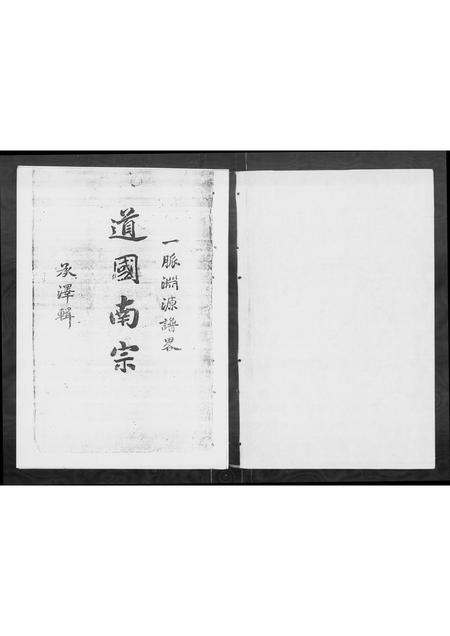 一脈淵源譜畧
道國南宗
承澤輯